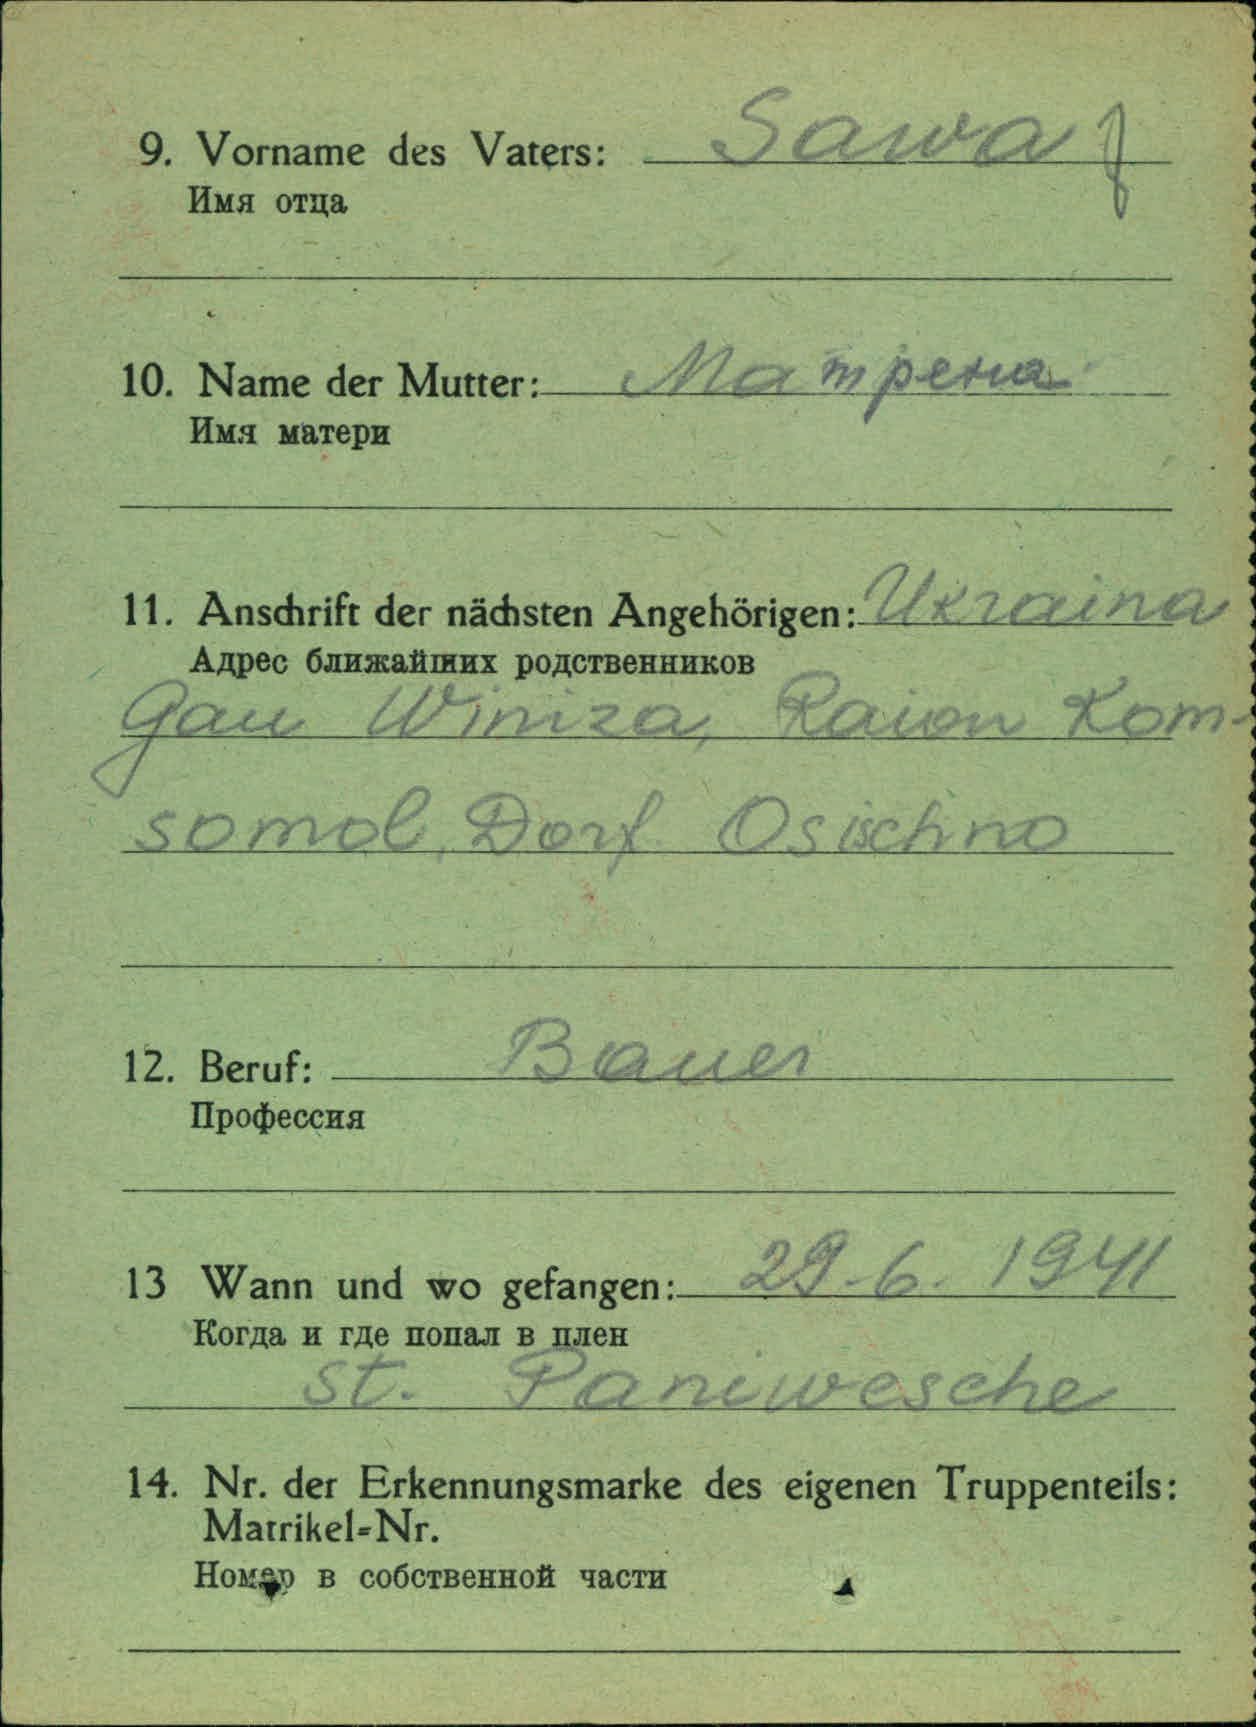 9. Vorname des Vaters: Sawa
Имя отца
10. Name der Mutter: Матрена
Имя матери
11. Anschrift der nächsten Angehörigen: Ukraina
Адрес ближайших родственников
Gau Winiza, Raion Kom-
somol, Dorf Osischno
12. Beruf: Bauer
Профессия
13 Wann und wo gefangen: 29.6.1941
Когда и где попал в плен
St. Paniwesche
14. Nr. der Erkennungsmarke des eigenen Truppenteils:
Matrikel=Nr.
Номер в собственной части